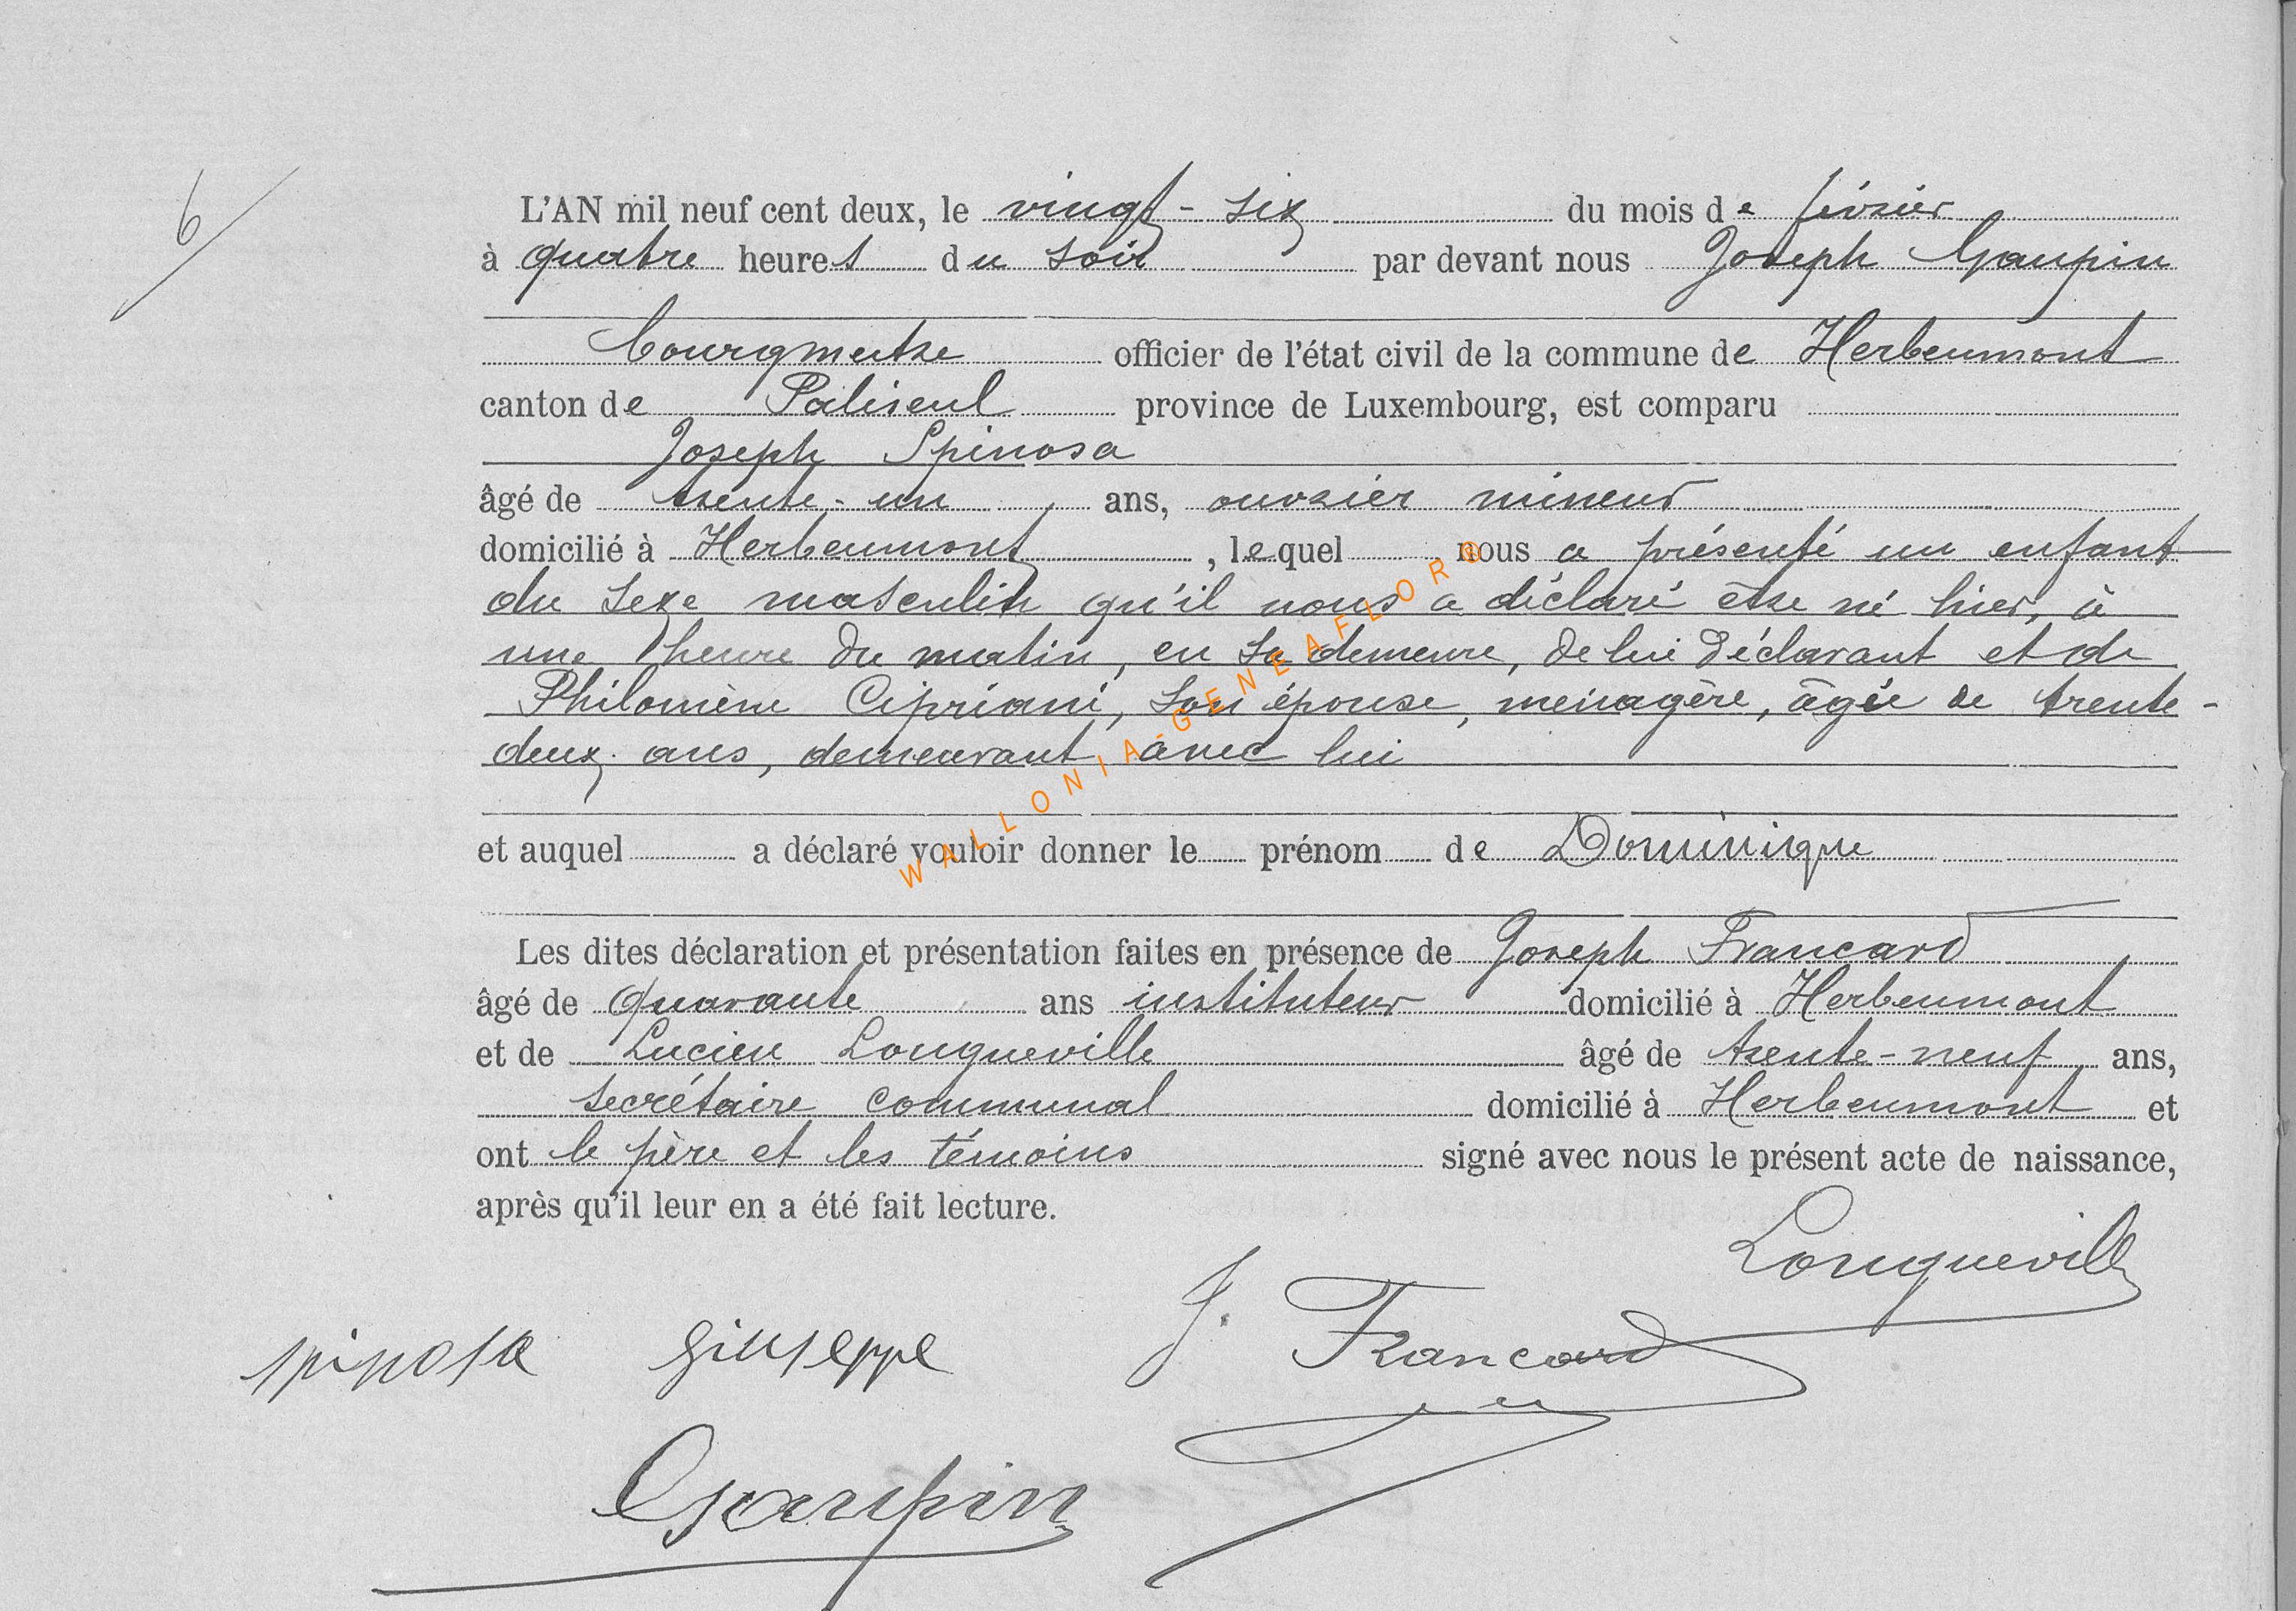 6
L'AN mil neuf cent deux, le vingt-six du mois de février
à quatre heures du soir par devant nous Joseph Gaupin
bourgmestre officier de l'état civil de la commune de Herbeumont
canton de Paliseul province de Luxembourg, est comparu
Joseph Spinosa
âgé de trente-un ans, ouvrier mineur
domicilié à Herbeumont, lequel nous a présenté un enfant
du sexe masculin qu'il nous a déclaré être né hier, à
une heure du matin, en sa demeure, de lui déclarant et de
Philomène Cipriani, son épouse, ménagère, âgée de trente-
deux ans, demeurant avec lui
et auquel a déclaré vouloir donner le prénom de Dominique
Les dites déclaration et présentation faites en présence de Joseph Francard
âgé de quarante ans instituteur domicilié à Herbeumont
et de Lucien Longueville âgé de trente-neuf ans,
secrétaire communal domicilié à Herbeumont et
ont le père et les témoins signé avec nous le présent acte de naissance,
après qu'il leur en a été fait lecture.
Longueville
spinosa giuseppe J. Francard
Gaupin
WALLONIA-GENEAFLORE